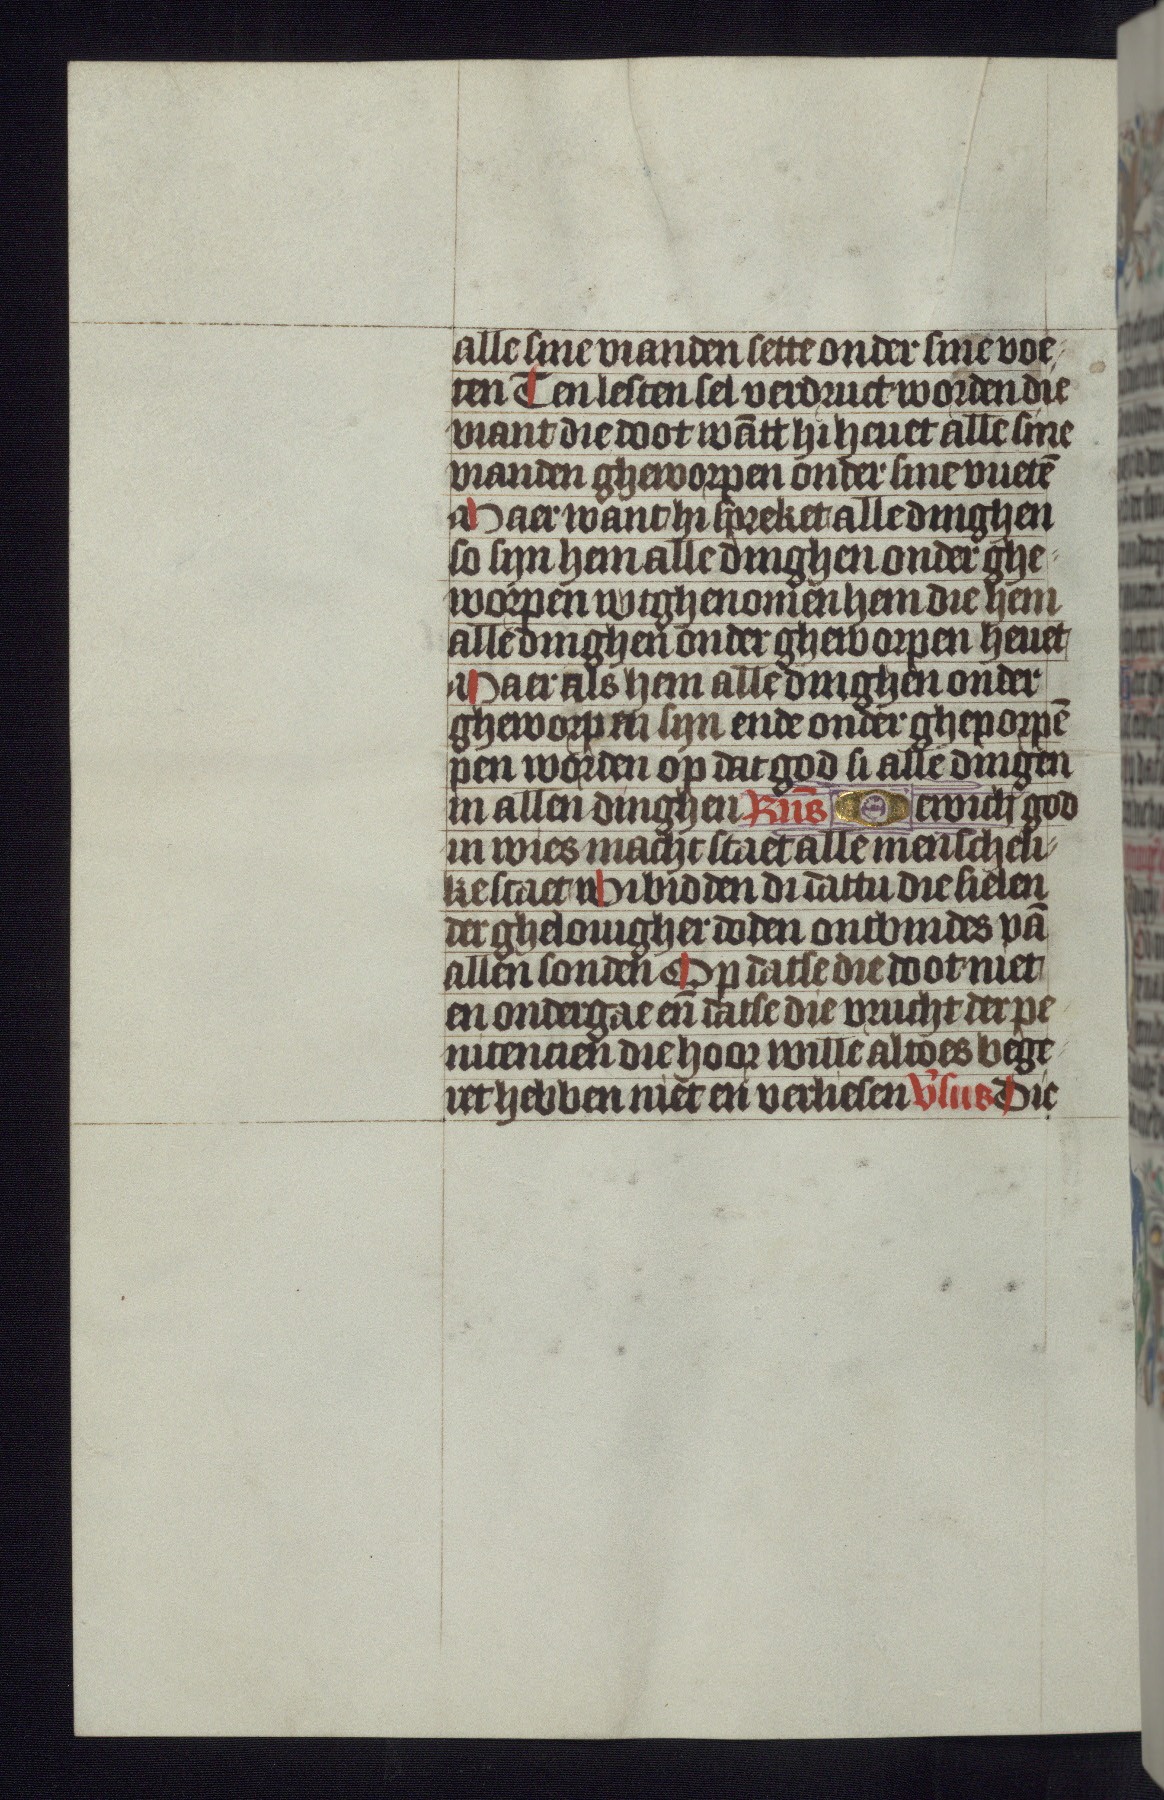 alle sine vianden sette onder sine voe-
ten Ten lesten sel verdruct worden die
viant die doot wātt hi heuet alle sine
vianden gheworpen onder sine vuetē
Maer want hi spreket alle dinghen
so sijn hem alle dinghen onder ghe-
worpen wtghenomen hem die hem
alle dinghen onder gheworpen heuet
Maer als hem alle dinghen onder
gheworpen sijn ende onder gheporpē
pen worden op dat god si alle dingen
in allen dinghen Rn̄s O ewich god
in wies macht staet alle menscheli-
ke staet Wi bidden di dattu die sielen
der ghelouigher doden ontbindes vā
allen sonden Op datse die doot niet
en ondergae en̄ datse die vrucht der pe
nitencien die hoor wille altoes bege-
ret hebben niet en verliesen V̓sus Die